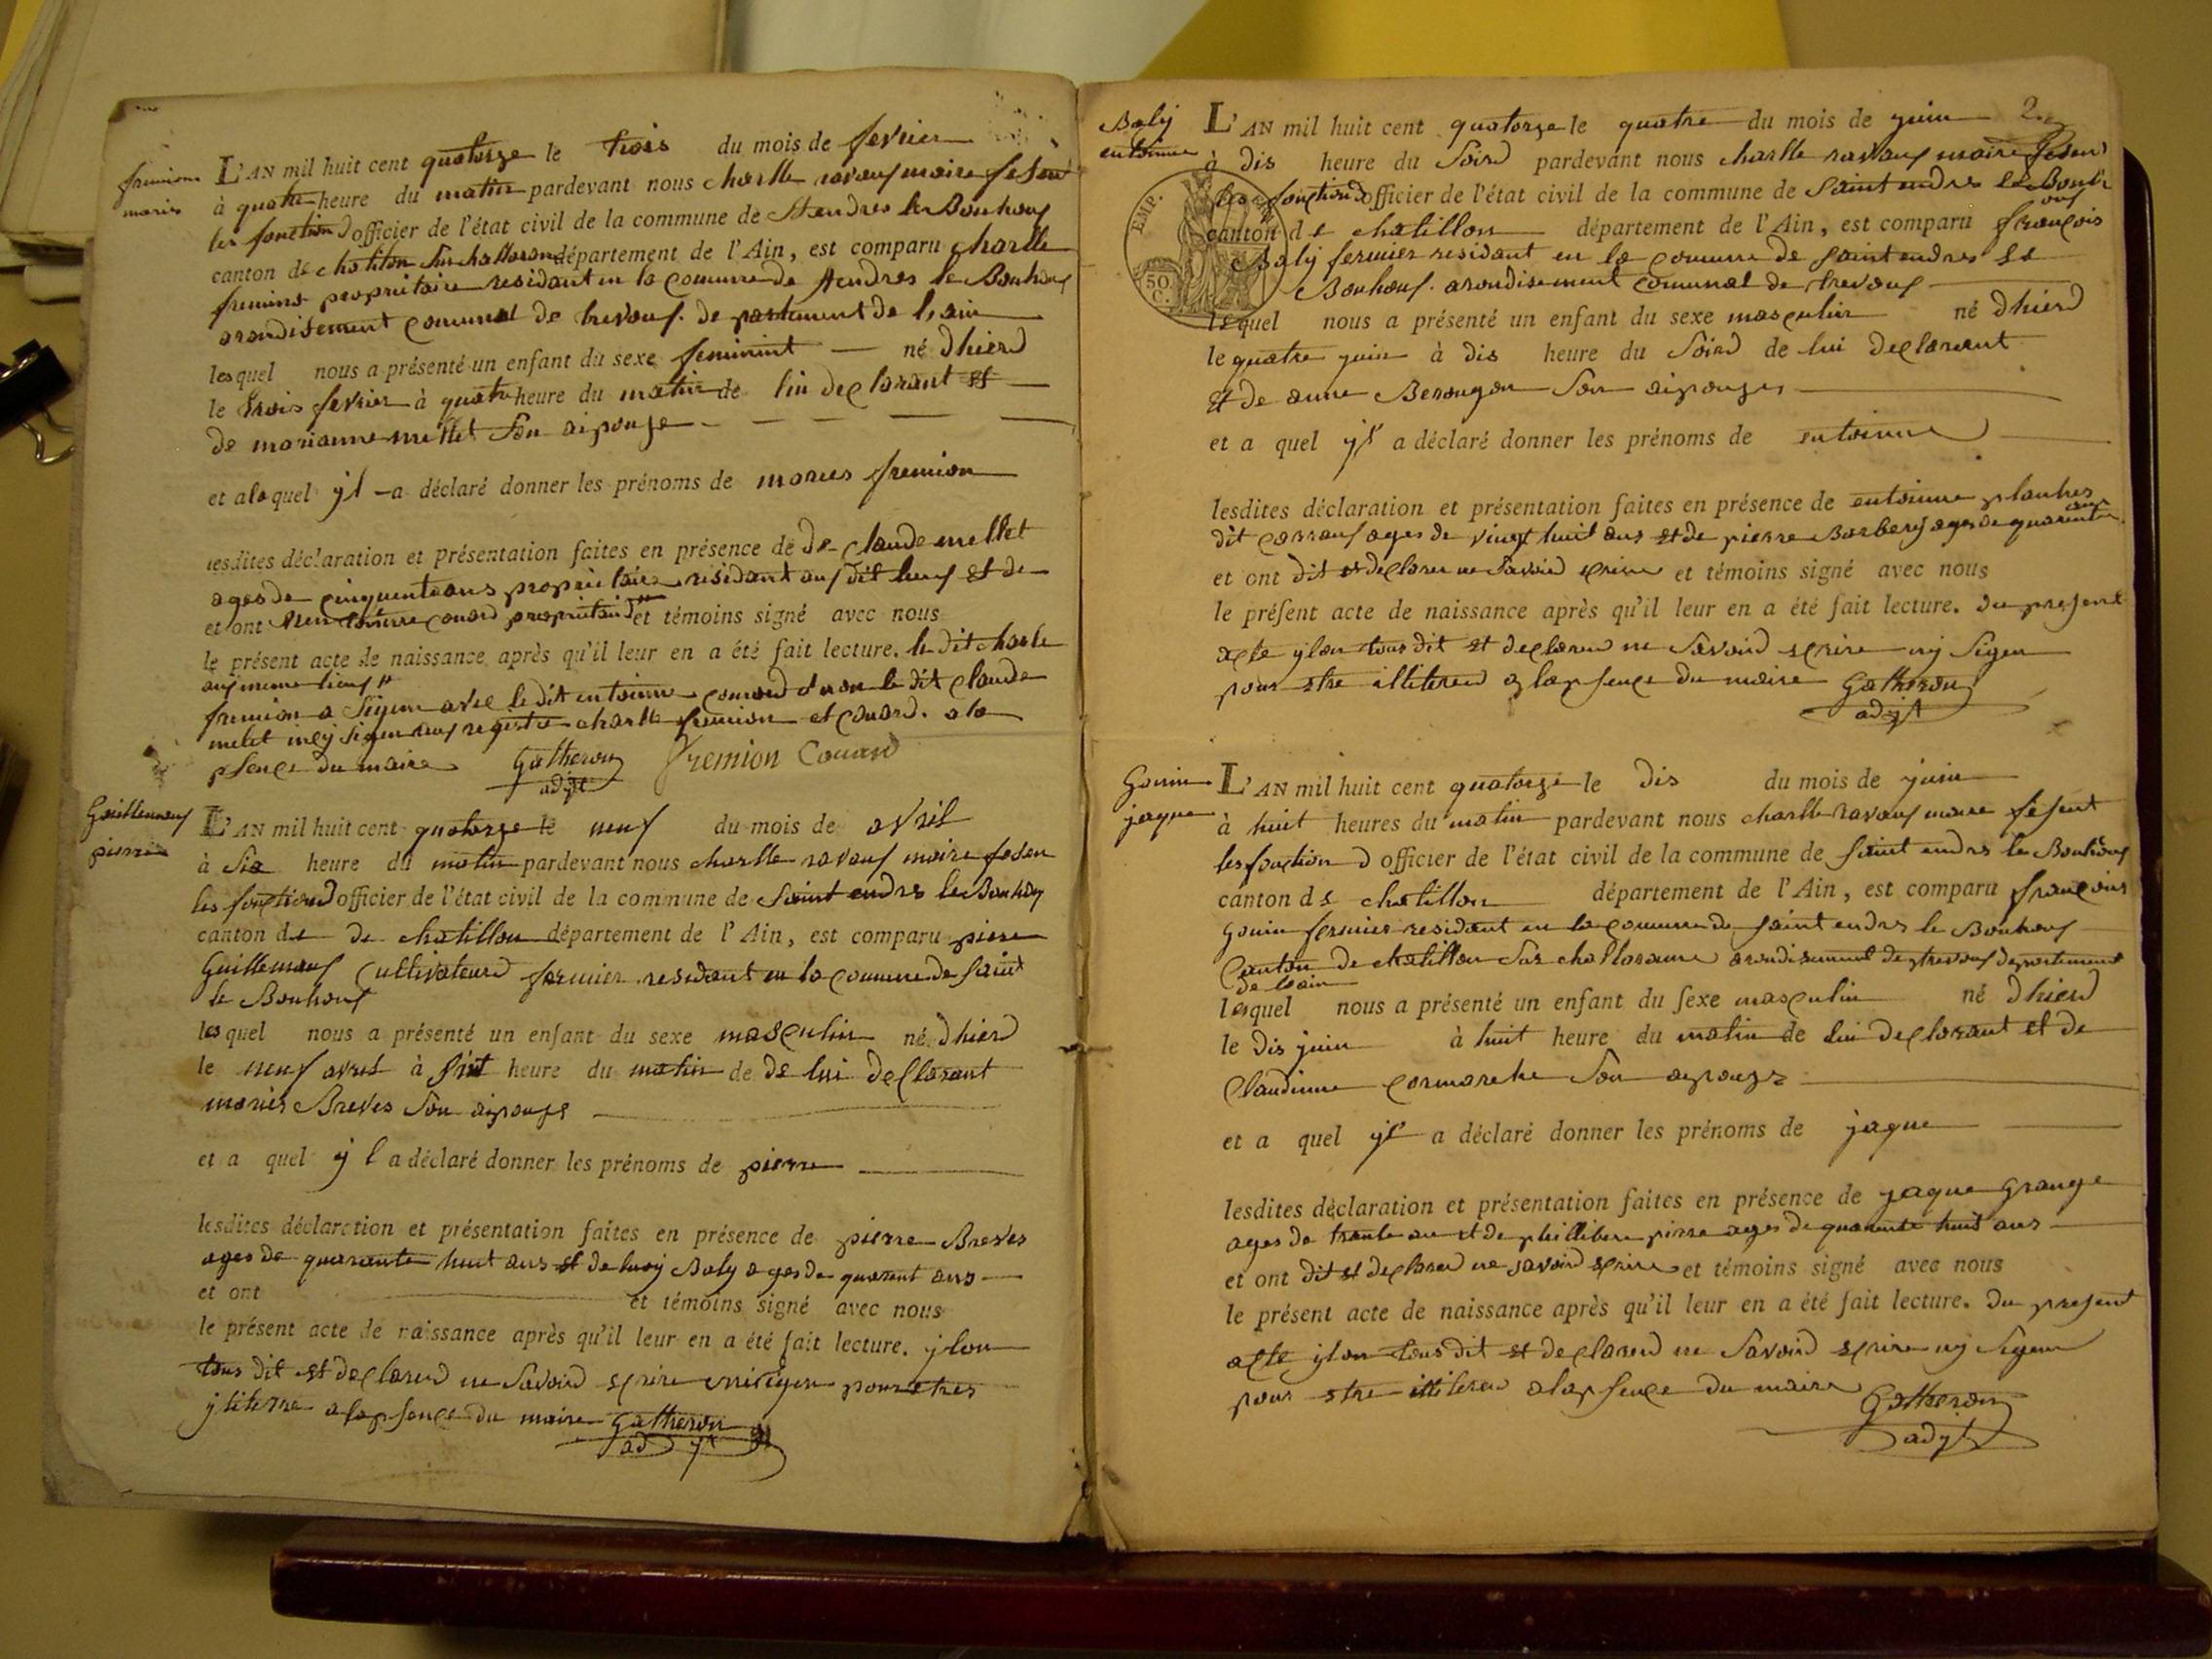 fremion
maries
L'AN mil huit cent quatorze le trois du mois de fevrier
à quatre heure du matin pardevant nous charlle ravaux maire fesent
les fonction d officier de l'état civil de la commune de St andres le Bouhouf
canton de chatilon sur challaronne département de l'Ain, est comparu charlle
fremino propriétaire residant en la comune de St endres le Bouhouf
arondisement comunal de trevouf de partement de l'ain
lesquel nous a présenté un enfant du sexe feminint né dhierd
le trois fevrier à quatre heure du matin de lui declarant et
de marianne mellet son aipouse
et alaquel yl a déclaré donner les prénoms de maries fremion
lesdites déclaration et présentation faites en présence de de claude mellet
ages de cinquente ans propriétaire residant aux dit lieuf et de
et ont couard propriétaird et témoins signé avec nous
le présent acte de naissance après qu'il leur en a été fait lecture. le dit charle
auf meme lieuf
fremion a sigen avec le dit entoinne couard et non le dit claude
melet ney sigen auf registre charlle fremion et couard. a la
psence du maire Gatheron Fremion Couard
adjt
Guillemauf
pierre
L'AN mil huit cent quatorze le neuf du mois de avril
à six heure du matin pardevant nous charlle ravauf maire fesen
les fonctiond officier de l'état civil de la commune de Saint endres le Bouhouf
canton de de chatillon département de l'Ain, est comparu pierre
Guillemauf cultivateurd fermier residant en la commune de saint
le Bouhouf
lesquel nous a présenté un enfant du sexe masculin né dhierd
le neuf avril à heure du matin de de lui declarant
maries Breves son aipouse
et a quel y l a déclaré donner les prénoms de pierre
lesdites déclaration et présentation faites en présence de pierre Breves
ages de quarante huit ans et de Baly ages de quarent ans
et ont et témoins signé avec nous
le présent acte de naissance après qu'il leur en a été fait lecture. ylon
tous dit et declarerd ne savoird scrire ni sigen pour etres
yliterre a la psence du maire Gatheron
adjt
2
Baly
entoinne
L'AN mil huit cent quatorze le quatre du mois de juin
à dis heure du soird pardevant nous charlle ravauf maire fesent
les fonctiond officier de l'état civil de la commune de saint endres le Bouh
ouf
canton de chatillon département de l'Ain, est comparu françois
Baly fermier residant en la comune de saint endres le
Bouhouf. arondisement comunal de trevouf
lequel nous a présenté un enfant du sexe masculin né dhierd
le quatre juin à dis heure du soird de lui declarant
et de anne Berougon son aipouse
et a quel yl a déclaré donner les prénoms de entoinne
lesdites déclaration et présentation faites en présence de entoinne planhes
dit carrauf ages de vingt huit ans et de pierre Barberij ages de quarente ans
et ont dit et declarer ne savoird scrire et témoins signé avec nous
le présent acte de naissance après qu'il leur en a été fait lecture. du present
acte ylon tous dit et declarerd ne savoird scrire ny sigen
pour etre illiterer a la psence du maire Gatheron
adjt
EMP.
50
C.
Gouin
jaque
L'AN mil huit cent quatorze le dis du mois de juin
à huit heures du matin pardevant nous charlle ravauf maire fesent
les fonction d officier de l'état civil de la commune de saint endres le Bouhouf
canton de chatillon département de l'Ain, est comparu françois
Gouin fermier residant en la comune de saint endres le Bouhouf
Canton de chatillon sur challaronne arondisement de trevouf departement
de lain
lesquel nous a présenté un enfant du sexe masculin né dhierd
le dis juin à huit heure du matin de lui declarant et de
Claudinne cormareche son aipouse
et a quel yl a déclaré donner les prénoms de jaque
lesdites déclaration et présentation faites en présence de jaque Grange
ages de trente an et de phillibere pirre ages de quarente huit ans
et ont dit et declarerd ne savoird scrire et témoins signé avec nous
le présent acte de naissance après qu'il leur en a été fait lecture. du present
acte ylon tous dit et declarerd ne savoird scrire ny sigen
pour etre illiterer a la psence du maire Gatheron
adjt